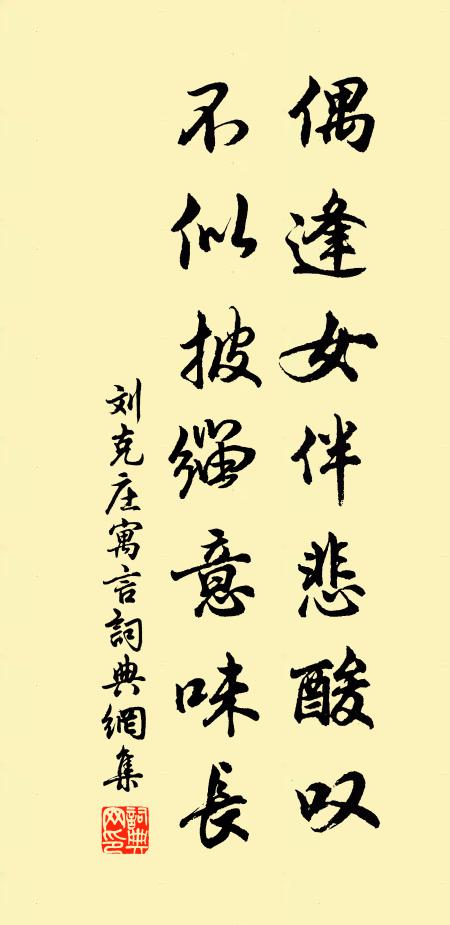 偶逢女伴悲酸叹
不似披緇意味長
刘克庄寓言詞典網集
詞典
网印